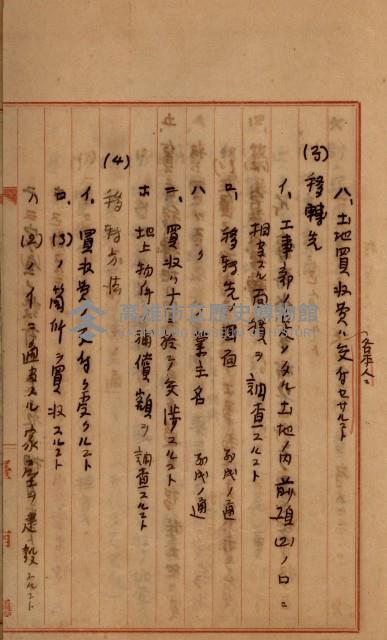 八、土地買收費ハ交付セサルコト
(各本人ニ)
(3) 移轉先
イ、工事部ノ指定シタル土地ノ内前項(2)ノロニ
相當スル面積ヲ調査スルコト
ロ、移轉先ノ圖面 別成ノ通
ハ、〃 業主名 別成ノ通
ニ、買收ハナル捨テ交渉スルコト
ホ、地上物件ノ補償額ヲ調査スルコト
(4) 移轉方法
イ、買收費ノ交付ヲ受クルコト
ロ、(3)ノ箇所ヲ買收スルコト
ハ、(2)ノイニ適當スル家屋ヲ建設スルコト
高雄市立歷史博物館